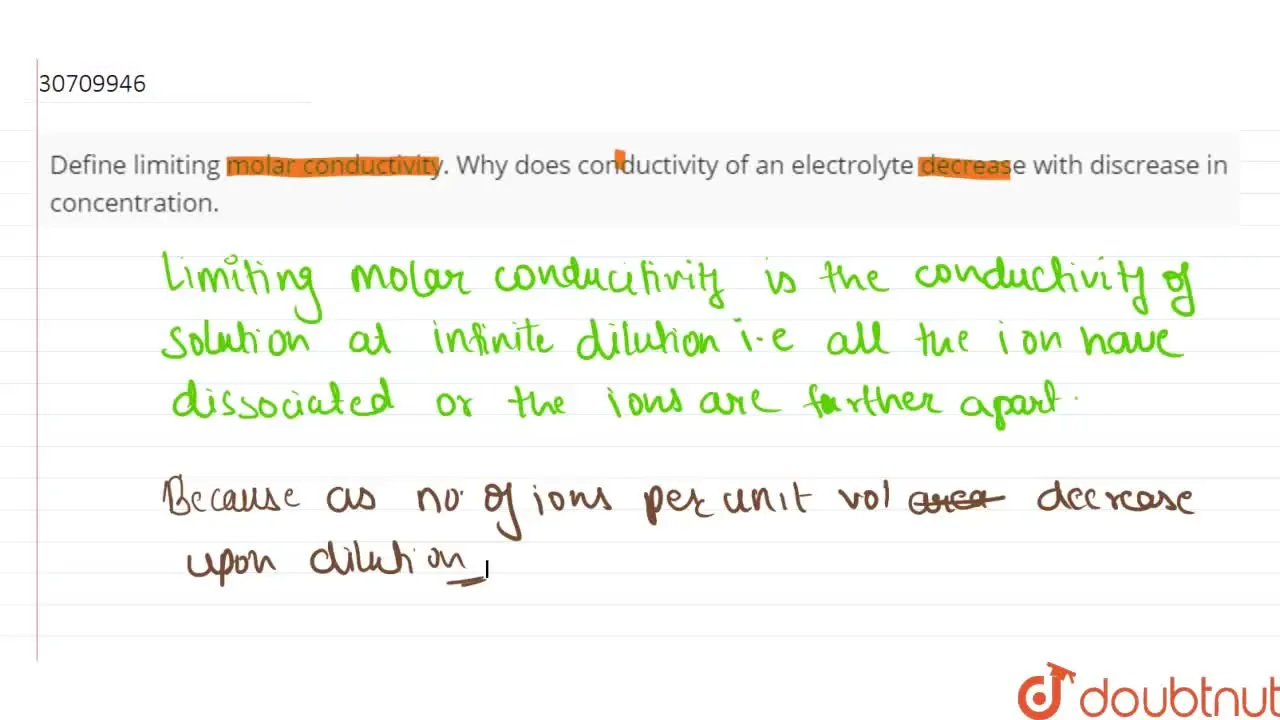 30709946
Define limiting molar conductivity. Why does conductivity of an electrolyte decrease with discrease in
concentration.
Limiting molar conducitivity is the conductivity of
solution at infinite dilution i.e all the ion have
dissociated or the ions are further apart.
Because as no. of ions per unit vol area decrease
upon dilution
doubtnut